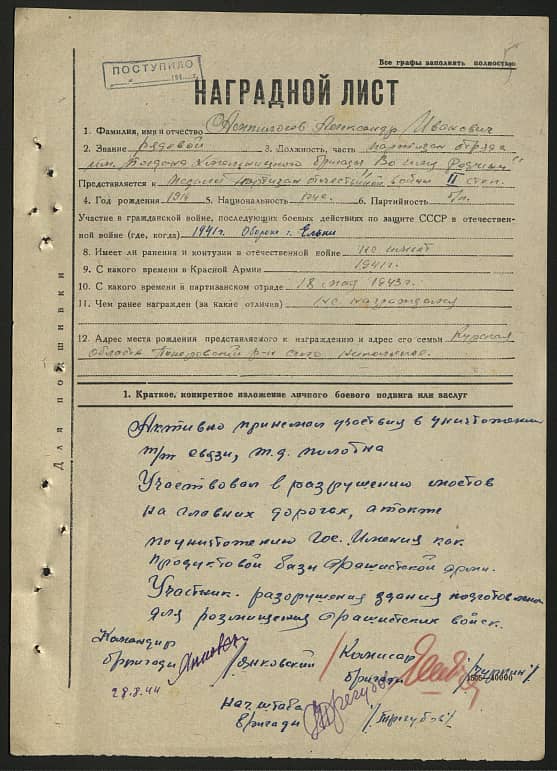 Все графы заполнять полностью
5
ПОСТУПИЛО
НАГРАДНОЙ ЛИСТ
1. Фамилия, имя и отчество Александр Иванович
2. Звание рядовой 3. Должность, часть партизан отряда
им. Богдана Хмельницкого бригады "За нашу Родину"
Представляется к Медалей партизан отечественной войны II степ.
4. Год рождения 5. Национальность 6. Партийность б/п.
Участие в гражданской войне, последующих боевых действиях по защите СССР в отечествен-
ной войне (где, когда) 1941 г. Оборона г. Ельни
8. Имеет ли ранения и контузии в отечественной войне не имеет
9. С какого времени в Красной Армии 1941 г.
10. С какого времени в партизанском отряде 18 мая 1943 г.
11. Чем ранее награжден (за какие отличия) не награждался
12. Адрес места рождения представляемого к награждению и адрес его семьи Курская
область р-н село
Для подшивки
1. Краткое, конкретное изложение личного боевого подвига или заслуг
Активно принемал участия в уничтожении
связи, ж.д. полотна
Участвовал в разрушению мостов
на главных дорогах, а также
поуничтожению Гос. Имения как
продуктовой базы фашистской арми.
Участник. разорушения здания подготовлена
для розмищения фрашистских войск.
Командир
бригади /Янковский/
28.8.44
Комисар
бригади /Чиркин/
40000
Нач. штаба
бригади /Трегубов/